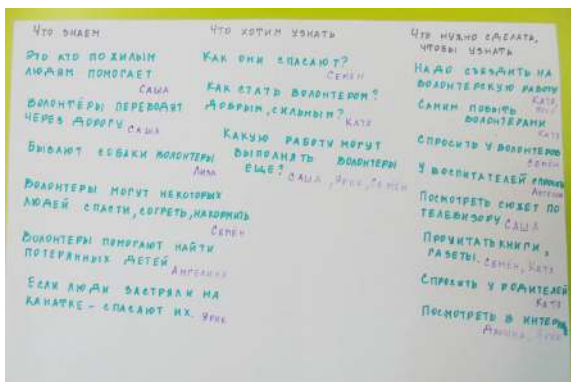 Что знаем
Это кто пожилым
людям помогает
Саша
Волонтёры переводят
через дорогу Саша
Бывают собаки волонтеры
Лиза
Волонтеры могут некоторых
людей спасти, согреть, накормить
Семен
Волонтеры помогают найти
потерянных детей
Ангелина
Если люди застряли на
канатке - спасают их. Ярик
Что хотим узнать
Как они спасают?
Семен
Как стать волонтером?
Добрым, сильным? Катя
Какую работу могут
выполнять волонтеры
еще? Саша, Ярик, Семен
Что нужно сделать,
чтобы узнать
Надо съездить на
волонтерскую работу
Катя,
Самим побыть
волонтерами
Катя
Спросить у волонтеров
Семен
У воспитателей спросить
Ангелина
Посмотреть сюжет по
телевизору Саша
Прочитать книги,
газеты. Семен, Катя
Спросить у родителей
Катя
Посмотреть в интернете
Ярик